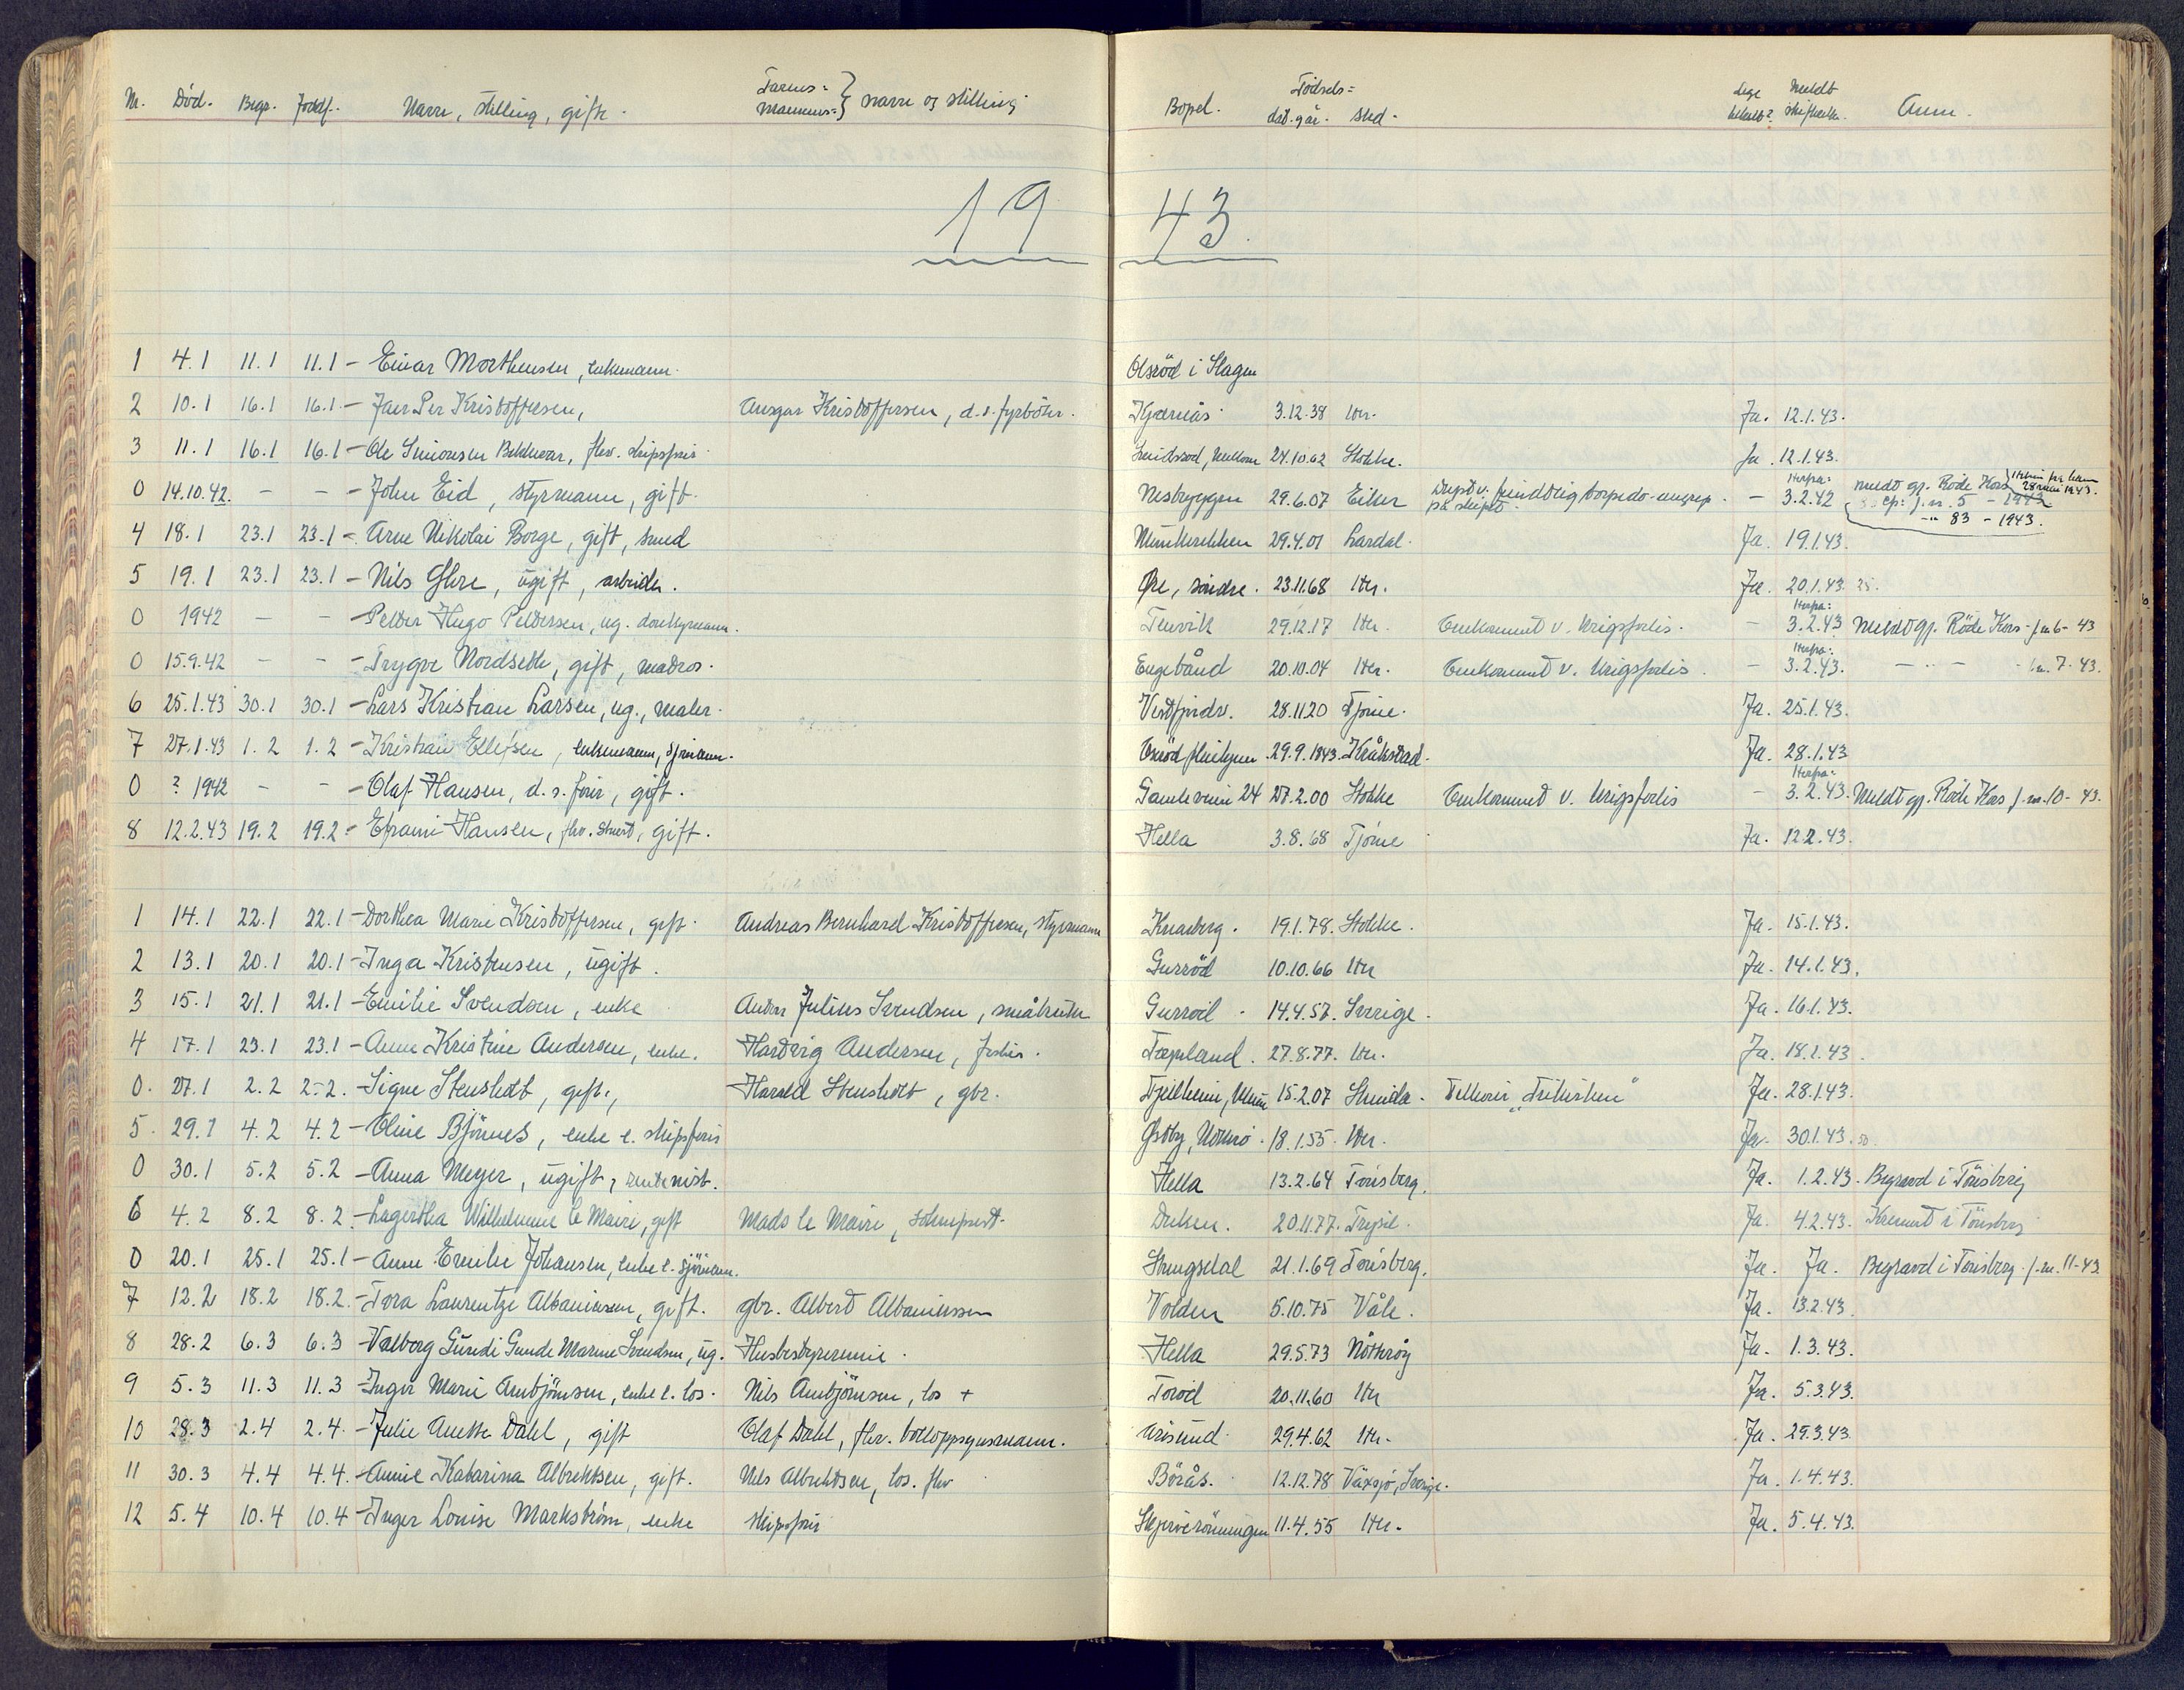 Nr. Død. Begr. Jordf. Navn, stilling, gift. Farens= Mannens=} navn og stilling Bopel. Fødsels= dat. og år. sted. Lege tilkalt? Meldt skifteretten. Anm.
19 43.
1 4.1 11.1 11.1 - Einar Morthensen, enkemann. Olsröd i Slagen
2 10.1 16.1 16.1 - Per Kristoffersen, Ansgar Kristoffersen, d.s. fyrböter. Kjærnås 3.12.38 Nr. Ja. 12.1.43.
3 11.1 16.1 16.1 - Ole Simonsen, fhv. skipsfører 24.10.62 Stokke. Ja. 12.1.43.
0 14.10.42. - - - John Eid, styrmann, gift. Nesbryggen 29.6.07 Eiker Drept v. fiendtlig torpedo-angrep på skipet. - 3.2.42 meldt gj. Röde Kors j.nr. 5 - 1943 -"- 83 - 1943.
4 18.1 23.1 23.1 - Arne Nikolai Borge, gift, smed Munkerekken 29.4.01 Lardal. Ja. 19.1.43.
5 19.1 23.1 23.1 - Nils Øhre, ugift, arbeider. Øre, søndre. 23.11.68 Ntr. Ja. 20.1.43.
0 1942 - - - Petter Hugo Pettersen, ug. donkeymann. Tenvik 29.12.17 Ntr. Omkommet v. krigsforlis. - 3.2.43 Meldt gj. Röde Kors - j.nr 6 - 43
0 15.9.42 - - - Trygve Nordseth, gift, matros. Engebånd 20.10.04 Ntr. Omkommet v. krigsforlis. - 3.2.43. - " - j.nr. 7 - 43.
6 25.1.43 30.1 30.1 - Lars Kristian Larsen, ug., maler. Vestfjordv. 28.11.20 Tjöme. Ja. 25.1.43.
7 27.1.43 1.2 1.2 - Kristian Ellefsen, enkemann, sjömann. 29.9.1843. Kråkstad. Ja. 28.1.43
0 ? 1942 - - - Olaf Hansen, d.s. förer, gift. Gamleveien 24 27.2.00 Stokke Omkommet v. krigsforlis - 3.2.43. Meldt gj. Röde Kors j.nr. 10 - 43.
8 12.2.43 19.2 19.2 - Efraim Hansen, fhv. stuert, gift. Hella 3.8.68 Tjöme Ja. 12.2.43.
1 14.1 22.1 22.1 - Dorthea Marie Kristoffersen, gift. Andreas Bernhard Kristoffersen, styrmann Knarberg. 19.1.78. Stokke. Ja. 15.1.43.
2 13.1 20.1 20.1 - Inga Kristensen, ugift. Gurröd 10.10.66 Ntr Ja. 14.1.43.
3 15.1 21.1 21.1 - Emilie Svendsen, enke Anders Julius Svendsen, småbruker Gurröd 14.4.57. Sverige. Ja. 16.1.43.
4 17.1 23.1 23.1 - Anne Kristine Andersen, enke. Hartvig Andersen, fisker. Føynland. 27.8.77. Ntr. Ja. 18.1.43.
0. 27.1 2.2 2-2. - Signe Stensholt, gift., Harald Stensholt, gbr. 15.2.07 Ja. 28.1.43.
5. 29.1 4.2 4.2 - Oline Bjönnes, enke e. skipsförer Østby, Nötterö. 18.1.55. Ntr. Ja. 30.1.43.
0 30.1 5.2 5.2 - Anna Meyer, ugift, Hella 13.2.64 Tönsberg. Ja. 1.2.43. Begravd i Tönsberg
6 4.2 8.2 8.2. - Lagertha Wilhelmine le Maire, gift Mads le Maire, Duken. 20.11.77. Trysil. Ja. 4.2.43. Kremert i Tönsberg
0 20.1 25.1 25.1 - Anne Emilie Johansen, enke e. sjömann. Strengsdal 21.1.69 Tönsberg. Ja. Ja. Begravd i Tönsberg. j.nr. 11-43
7 12.2 18.2 18.2. - Tora Laurentze Albaniussen, gift. gbr. Albert Albaniussen Volden 5.10.75 Våle. Ja. 13.2.43.
8 28.2 6.3 6.3 - Valborg Gunde Marine Svendsen, ug. Husbestyrerinne. Hella 29.5.73 Nötteröy Ja. 1.3.43.
9 5.3 11.3 11.3 - Inger Marie Arnbjörnsen, enke e. los. Nils Arnbjörnsen, los + Torød 20.11.60 Ntr Ja. 5.3.43.
10 28.3 2.4 2.4. - Julie Anette Dahl, gift Olaf Dahl, fhv. tolloppsynsmann. Årøsund 29.4.62 Ntr. Ja. 29.3.43
11 30.3 4.4 4.4. - Annie Katarina Albrektsen, gift. Nils Albrektsen, los. fhv Börås. 12.12.78 Växsjö, Sverige. Ja. 1.4.43.
12 5.4 10.4 10.4 - Inger Louise Markström, enke skipsförer 11.4.55 Ntr. Ja. 5.4.43.